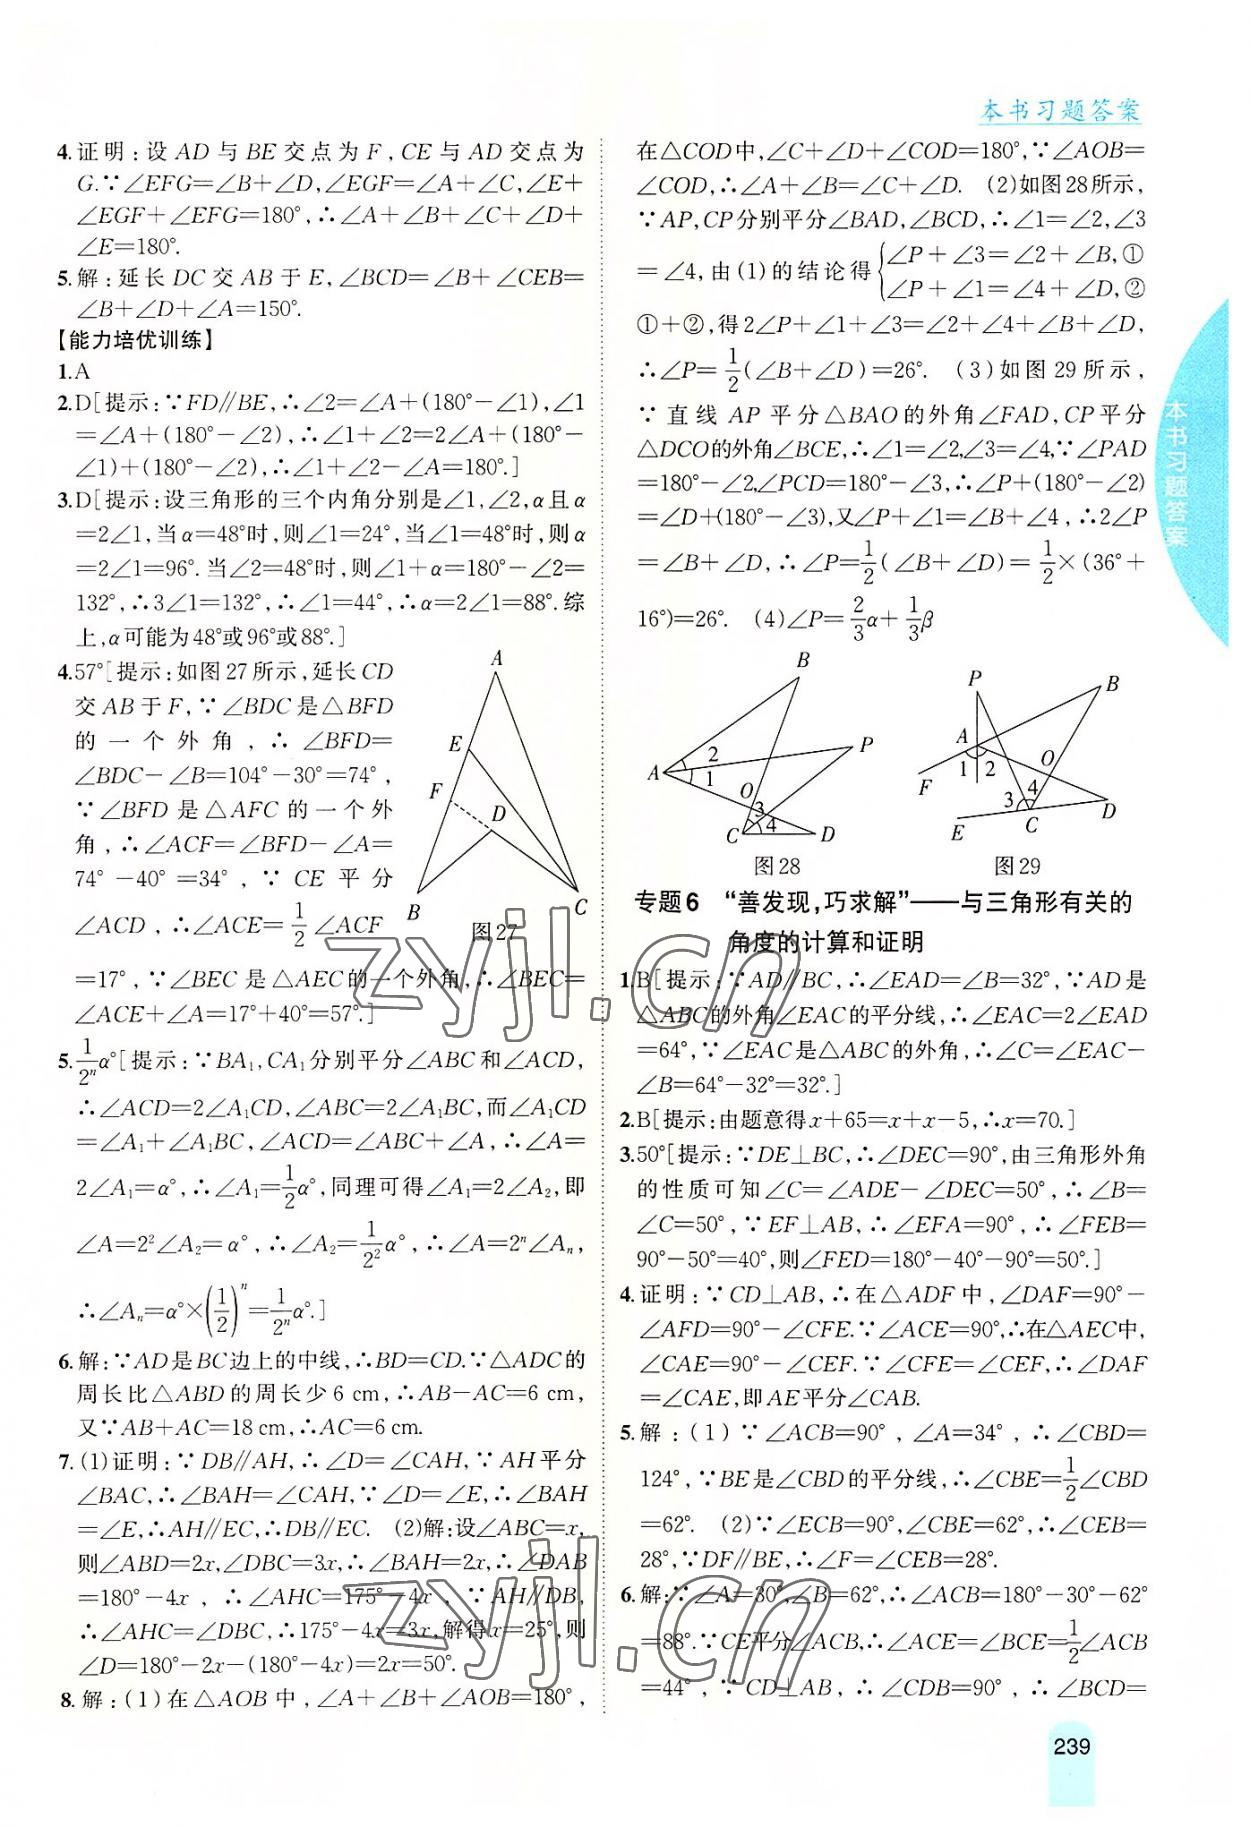 本书习题答案
4.证明:设 AD 与 BE 交点为 F,CE 与 AD 交点为
G.∵∠EFG=∠B+∠D,∠EGF=∠A+∠C,∠E+
∠EGF+∠EFG=180°,∴∠A+∠B+∠C+∠D+
∠E=180°.
5.解:延长 DC 交 AB 于 E,∠BCD=∠B+∠CEB=
∠B+∠D+∠A=150°.
【能力培优训练】
1.A
2.D[提示:∵FD∥BE,∴∠2=∠A+(180°-∠1),∠1
=∠A+(180°-∠2),∴∠1+∠2=2∠A+(180°-
∠1)+(180°-∠2),∴∠1+∠2-∠A=180°.]
3.D[提示:设三角形的三个内角分别是∠1,∠2,α且α
=2∠1,当α=48°时,则∠1=24°,当∠1=48°时,则α
=2∠1=96°.当∠2=48°时,则∠1+α=180°-∠2=
132°,∴3∠1=132°,∴∠1=44°,∴α=2∠1=88°.综
上,α可能为48°或96°或88°.]
4.57°[提示:如图27所示,延长CD
交AB于F,∵∠BDC是△BFD
的一个外角,∴∠BFD=
∠BDC-∠B=104°-30°=74°,
∵∠BFD是△AFC的一个外
角,∴∠ACF=∠BFD-∠A=
74°-40°=34°,∵CE平分
∠ACD,∴∠ACE=1/2∠ACF
A
E
F
D
B
C
图27
=17°,∵∠BEC是△AEC的一个外角,∴∠BEC=
∠ACE+∠A=17°+40°=57°.]
5.1/2ⁿα°[提示:∵BA₁,CA₁分别平分∠ABC和∠ACD,
∴∠ACD=2∠A₁CD,∠ABC=2∠A₁BC,而∠A₁CD
=∠A₁+∠A₁BC,∠ACD=∠ABC+∠A,∴∠A=
2∠A₁=α°,∴∠A₁=1/2α°,同理可得∠A₁=2∠A₂,即
∠A=2²∠A₂=α°,∴∠A₂=1/2²α°,∴∠A=2ⁿ∠Aₙ,
∴∠Aₙ=α°×(1/2)ⁿ=1/2ⁿα°.]
6.解:∵AD是BC边上的中线,∴BD=CD.∵△ADC的
周长比△ABD的周长少6 cm,∴AB-AC=6 cm,
又∵AB+AC=18 cm,∴AC=6 cm.
7.(1)证明:∵DB∥AH,∴∠D=∠CAH,∵AH平分
∠BAC,∴∠BAH=∠CAH,∵∠D=∠E,∴∠BAH
=∠E,∴AH∥EC,∴DB∥EC. (2)解:设∠ABC=x,
则∠ABD=2x,∠DBC=3x,∴∠BAH=2x,∴∠DAB
=180°-4x,∴∠AHC=175°-4x,∵AH∥DB,
∴∠AHC=∠DBC,∴175°-4x=3x,解得x=25°,则
∠D=180°-2x-(180°-4x)=2x=50°.
8.解:(1)在△AOB中,∠A+∠B+∠AOB=180°,
在△COD中,∠C+∠D+∠COD=180°,∵∠AOB=
∠COD,∴∠A+∠B=∠C+∠D. (2)如图28所示,
∵AP,CP分别平分∠BAD,∠BCD,∴∠1=∠2,∠3
=∠4,由(1)的结论得{∠P+∠3=∠2+∠B,①
∠P+∠1=∠4+∠D,②
①+②,得2∠P+∠1+∠3=∠2+∠4+∠B+∠D,
∴∠P=1/2(∠B+∠D)=26°. (3)如图29所示,
∵直线AP平分△BAO的外角∠FAD,CP平分
△DCO的外角∠BCE,∴∠1=∠2,∠3=∠4,∵∠PAD
=180°-∠2,∠PCD=180°-∠3,∴∠P+(180°-∠2)
=∠D+(180°-∠3),又∠P+∠1=∠B+∠4,∴2∠P
=∠B+∠D,∴∠P=1/2(∠B+∠D)=1/2×(36°+
16°)=26°. (4)∠P=2/3α+1/3β
B
P
A
2
1
O
3
4
C
D
图28
P
B
A
O
F
1
2
3
4
E
C
D
图29
专题6 “善发现,巧求解”——与三角形有关的
角度的计算和证明
1.B[提示:∵AD∥BC,∴∠EAD=∠B=32°,∵AD是
△ABC的外角∠EAC的平分线,∴∠EAC=2∠EAD
=64°,∵∠EAC是△ABC的外角,∴∠C=∠EAC-
∠B=64°-32°=32°.]
2.B[提示:由题意得x+65=x+x-5,∴x=70.]
3.50°[提示:∵DE⊥BC,∴∠DEC=90°,由三角形外角
的性质可知∠C=∠ADE-∠DEC=50°,∴∠B=
∠C=50°,∵EF⊥AB,∴∠EFA=90°,∴∠FEB=
90°-50°=40°,则∠FED=180°-40°-90°=50°.]
4.证明:∵CD⊥AB,∴在△ADF中,∠DAF=90°-
∠AFD=90°-∠CFE.∵∠ACE=90°,∴在△AEC中,
∠CAE=90°-∠CEF.∵∠CFE=∠CEF,∴∠DAF
=∠CAE,即AE平分∠CAB.
5.解:(1)∵∠ACB=90°,∠A=34°,∴∠CBD=
124°,∵BE是∠CBD的平分线,∴∠CBE=1/2∠CBD
=62°. (2)∵∠ECB=90°,∠CBE=62°,∴∠CEB=
28°,∵DF∥BE,∴∠F=∠CEB=28°.
6.解:∵∠A=30°,∠B=62°,∴∠ACB=180°-30°-62°
=88°.∵CE平分∠ACB,∴∠ACE=∠BCE=1/2∠ACB
=44°,∵CD⊥AB,∴∠CDB=90°,∴∠BCD=
本书习题答案
239
zyjl.cn
zyjl.cn